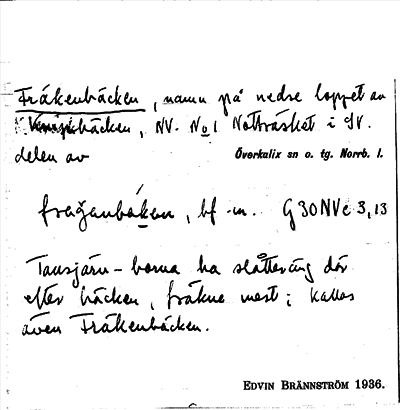 Fräkenbäcken, namn på nedre loppet av
bäcken, NV. No 1 Nottväsket i SV.
delen av Överkalix sn o. tg. Norrb. l.
fraganbäken, bf -n. G30NVc3,13
Tansjärn-borna ha slåtteräng där
efter bäcken, fräkne mest; kallas
även Fräkenbäcken.
EDVIN BRÄNNSTRÖM 1936.